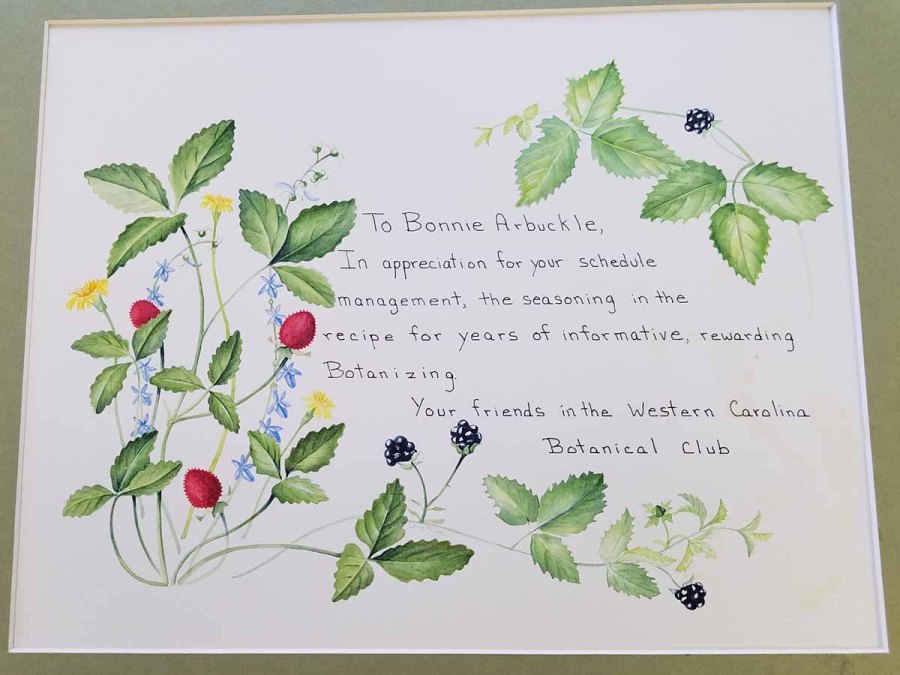 To Bonnie Arbuckle,
In appreciation for your schedule
management, the seasoning in the
recipe for years of informative, rewarding
Botanizing.
Your friends in the Western Carolina
Botanical Club